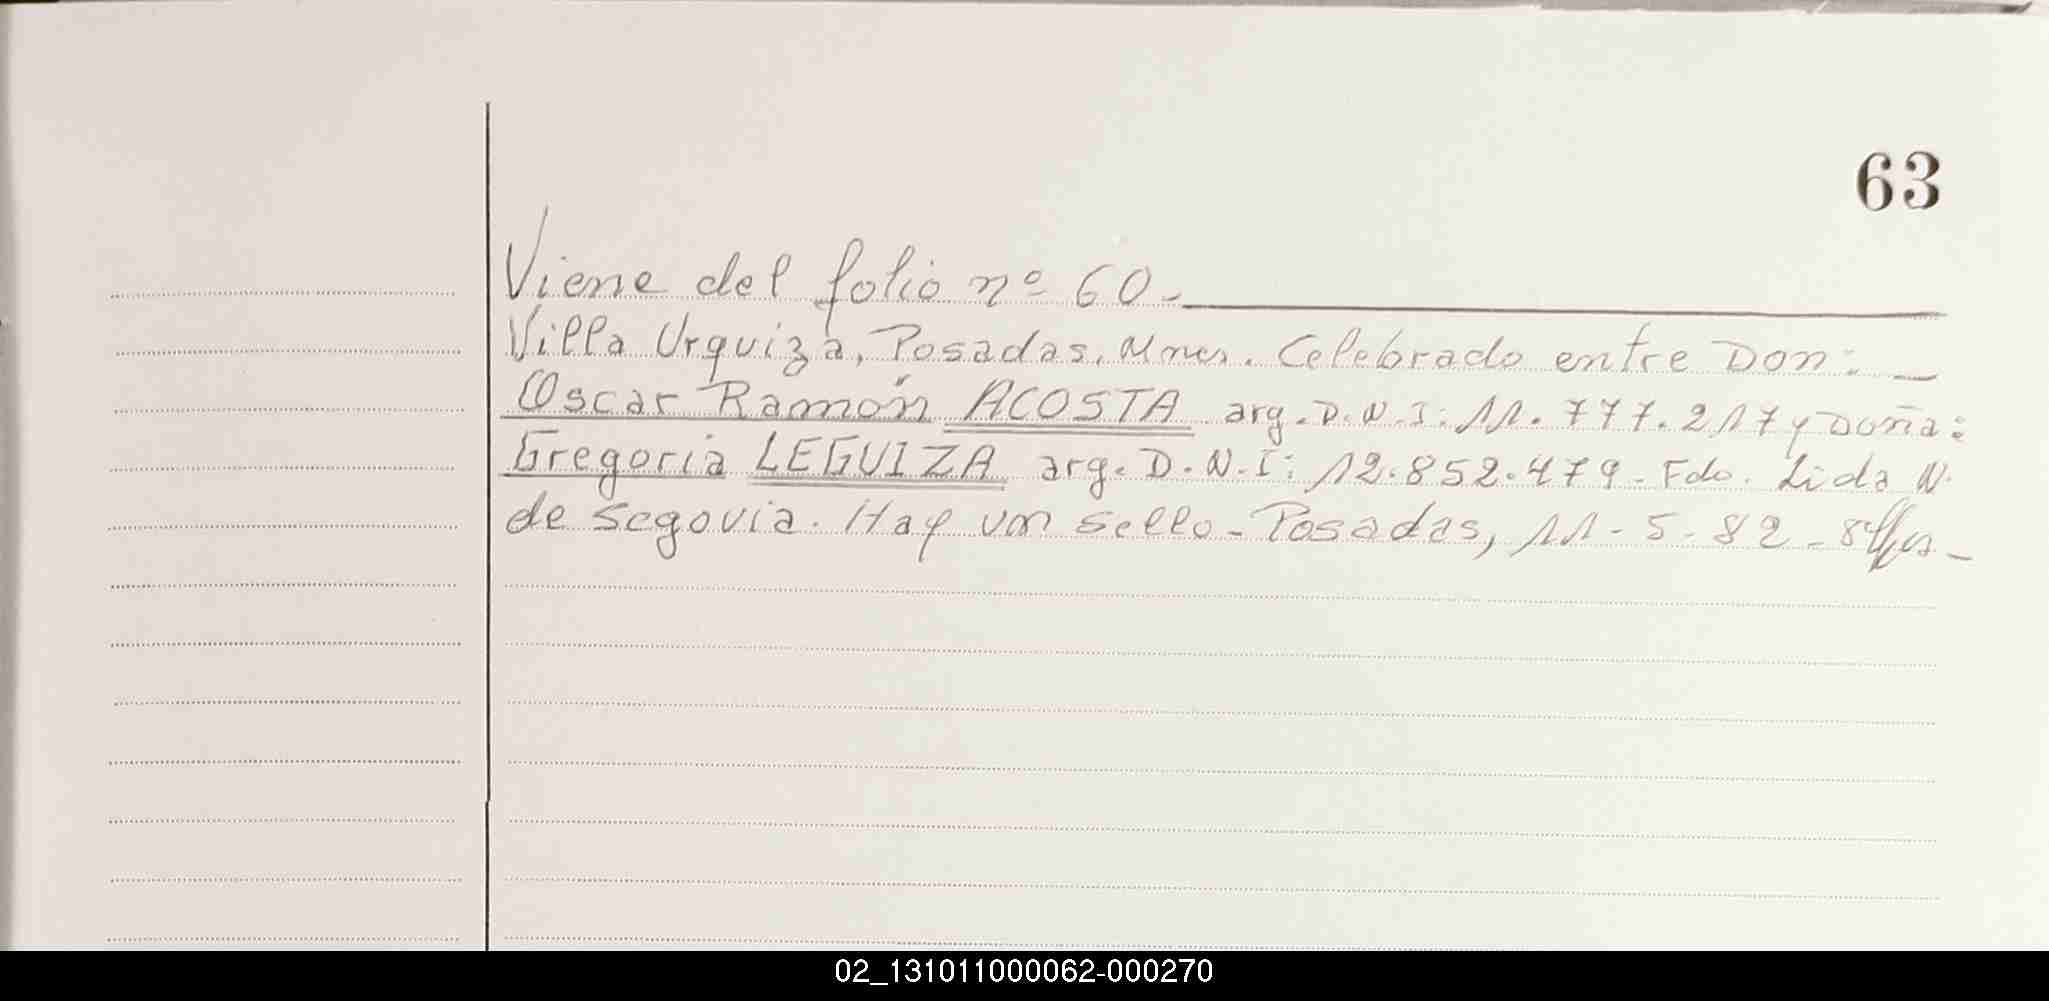 63
Viene del folio nº 60.-
Villa Urquiza, Posadas, Mnes. Celebrado entre Don:
Oscar Ramón ACOSTA arg. D.N.I: 11.777.217 y Doña:
Gregoria LEGUIZA arg. D.N.I: 12.852.479 - Fdo. Lida N.
de Segovia. Hay un sello - Posadas, 11-5-82 -
02_131011000062-000270